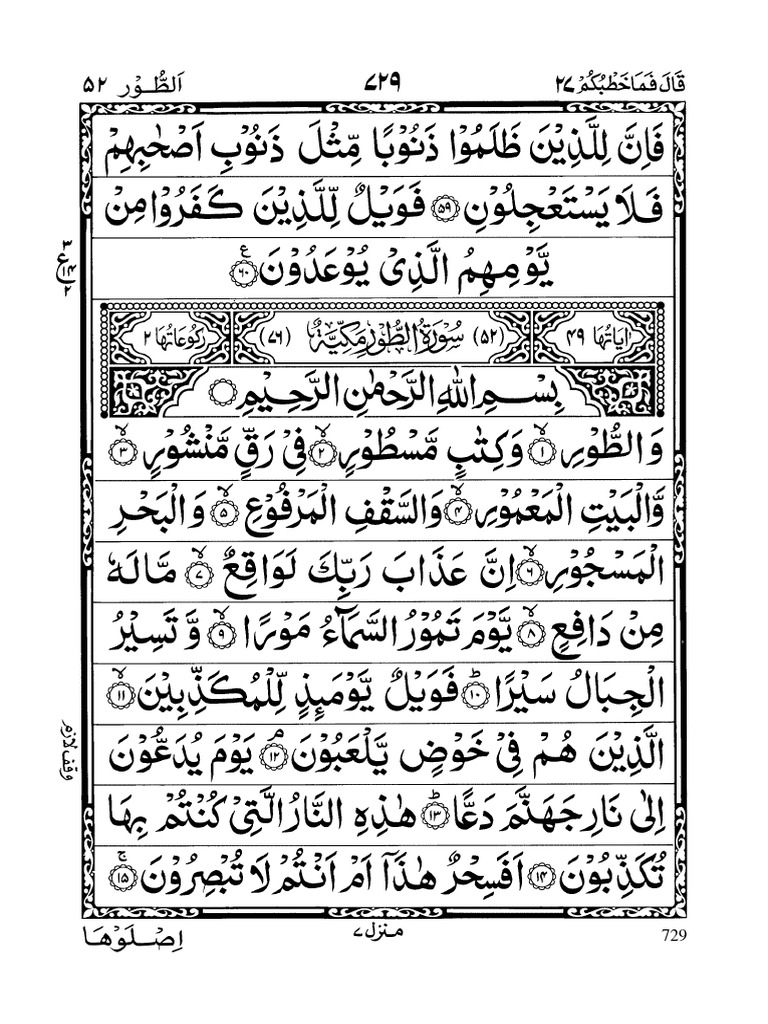 قَالَ فَمَا خَطْبُكُمْ ۲۷ ۷۲۹ اَلطُّوْر ۵۲
فَاِنَّ لِلَّذِيْنَ ظَلَمُوْا ذَنُوْبًا مِّثْلَ ذَنُوْبِ اَصْحٰبِهِمْ
فَلَا يَسْتَعْجِلُوْنِ ﴿۵۹﴾ فَوَيْلٌ لِّلَّذِيْنَ كَفَرُوْا مِنْ
يَّوْمِهِمُ الَّذِيْ يُوْعَدُوْنَ ﴿۶۰﴾ ع
۳ ع ۱۴ ۲
اٰيَاتُهَا ۴۹ (۵۲) سُوْرَةُ الطُّوْرِ مَكِّيَّةٌ (۷۶) رُكُوْعَاتُهَا ۲
بِسْمِ اللّٰهِ الرَّحْمٰنِ الرَّحِيْمِ
وَالطُّوْرِ ﴿۱﴾ۙ وَكِتٰبٍ مَّسْطُوْرٍ ﴿۲﴾ۙ فِيْ رَقٍّ مَّنْشُوْرٍ ﴿۳﴾ۙ
وَّالْبَيْتِ الْمَعْمُوْرِ ﴿۴﴾ۙ وَالسَّقْفِ الْمَرْفُوْعِ ﴿۵﴾ۙ وَالْبَحْرِ
الْمَسْجُوْرِ ﴿۶﴾ۙ اِنَّ عَذَابَ رَبِّكَ لَوَاقِعٌ ﴿۷﴾ۙ مَّا لَهٗ
مِنْ دَافِعٍ ﴿۸﴾ۙ يَّوْمَ تَمُوْرُ السَّمَآءُ مَوْرًا ﴿۹﴾ۙ وَّ تَسِيْرُ
الْجِبَالُ سَيْرًا ﴿۱۰﴾ؕ فَوَيْلٌ يَّوْمَئِذٍ لِّلْمُكَذِّبِيْنَ ﴿۱۱﴾ۙ
الَّذِيْنَ هُمْ فِيْ خَوْضٍ يَّلْعَبُوْنَ ﴿۱۲﴾ۘ يَوْمَ يُدَعُّوْنَ
وقف لازم
اِلٰى نَارِ جَهَنَّمَ دَعًّا ﴿۱۳﴾ؕ هٰذِهِ النَّارُ الَّتِيْ كُنْتُمْ بِهَا
تُكَذِّبُوْنَ ﴿۱۴﴾ اَفَسِحْرٌ هٰذَاۤ اَمْ اَنْتُمْ لَا تُبْصِرُوْنَ ﴿۱۵﴾ۚ
729 منزل ۷ اِصْلَوْهَا